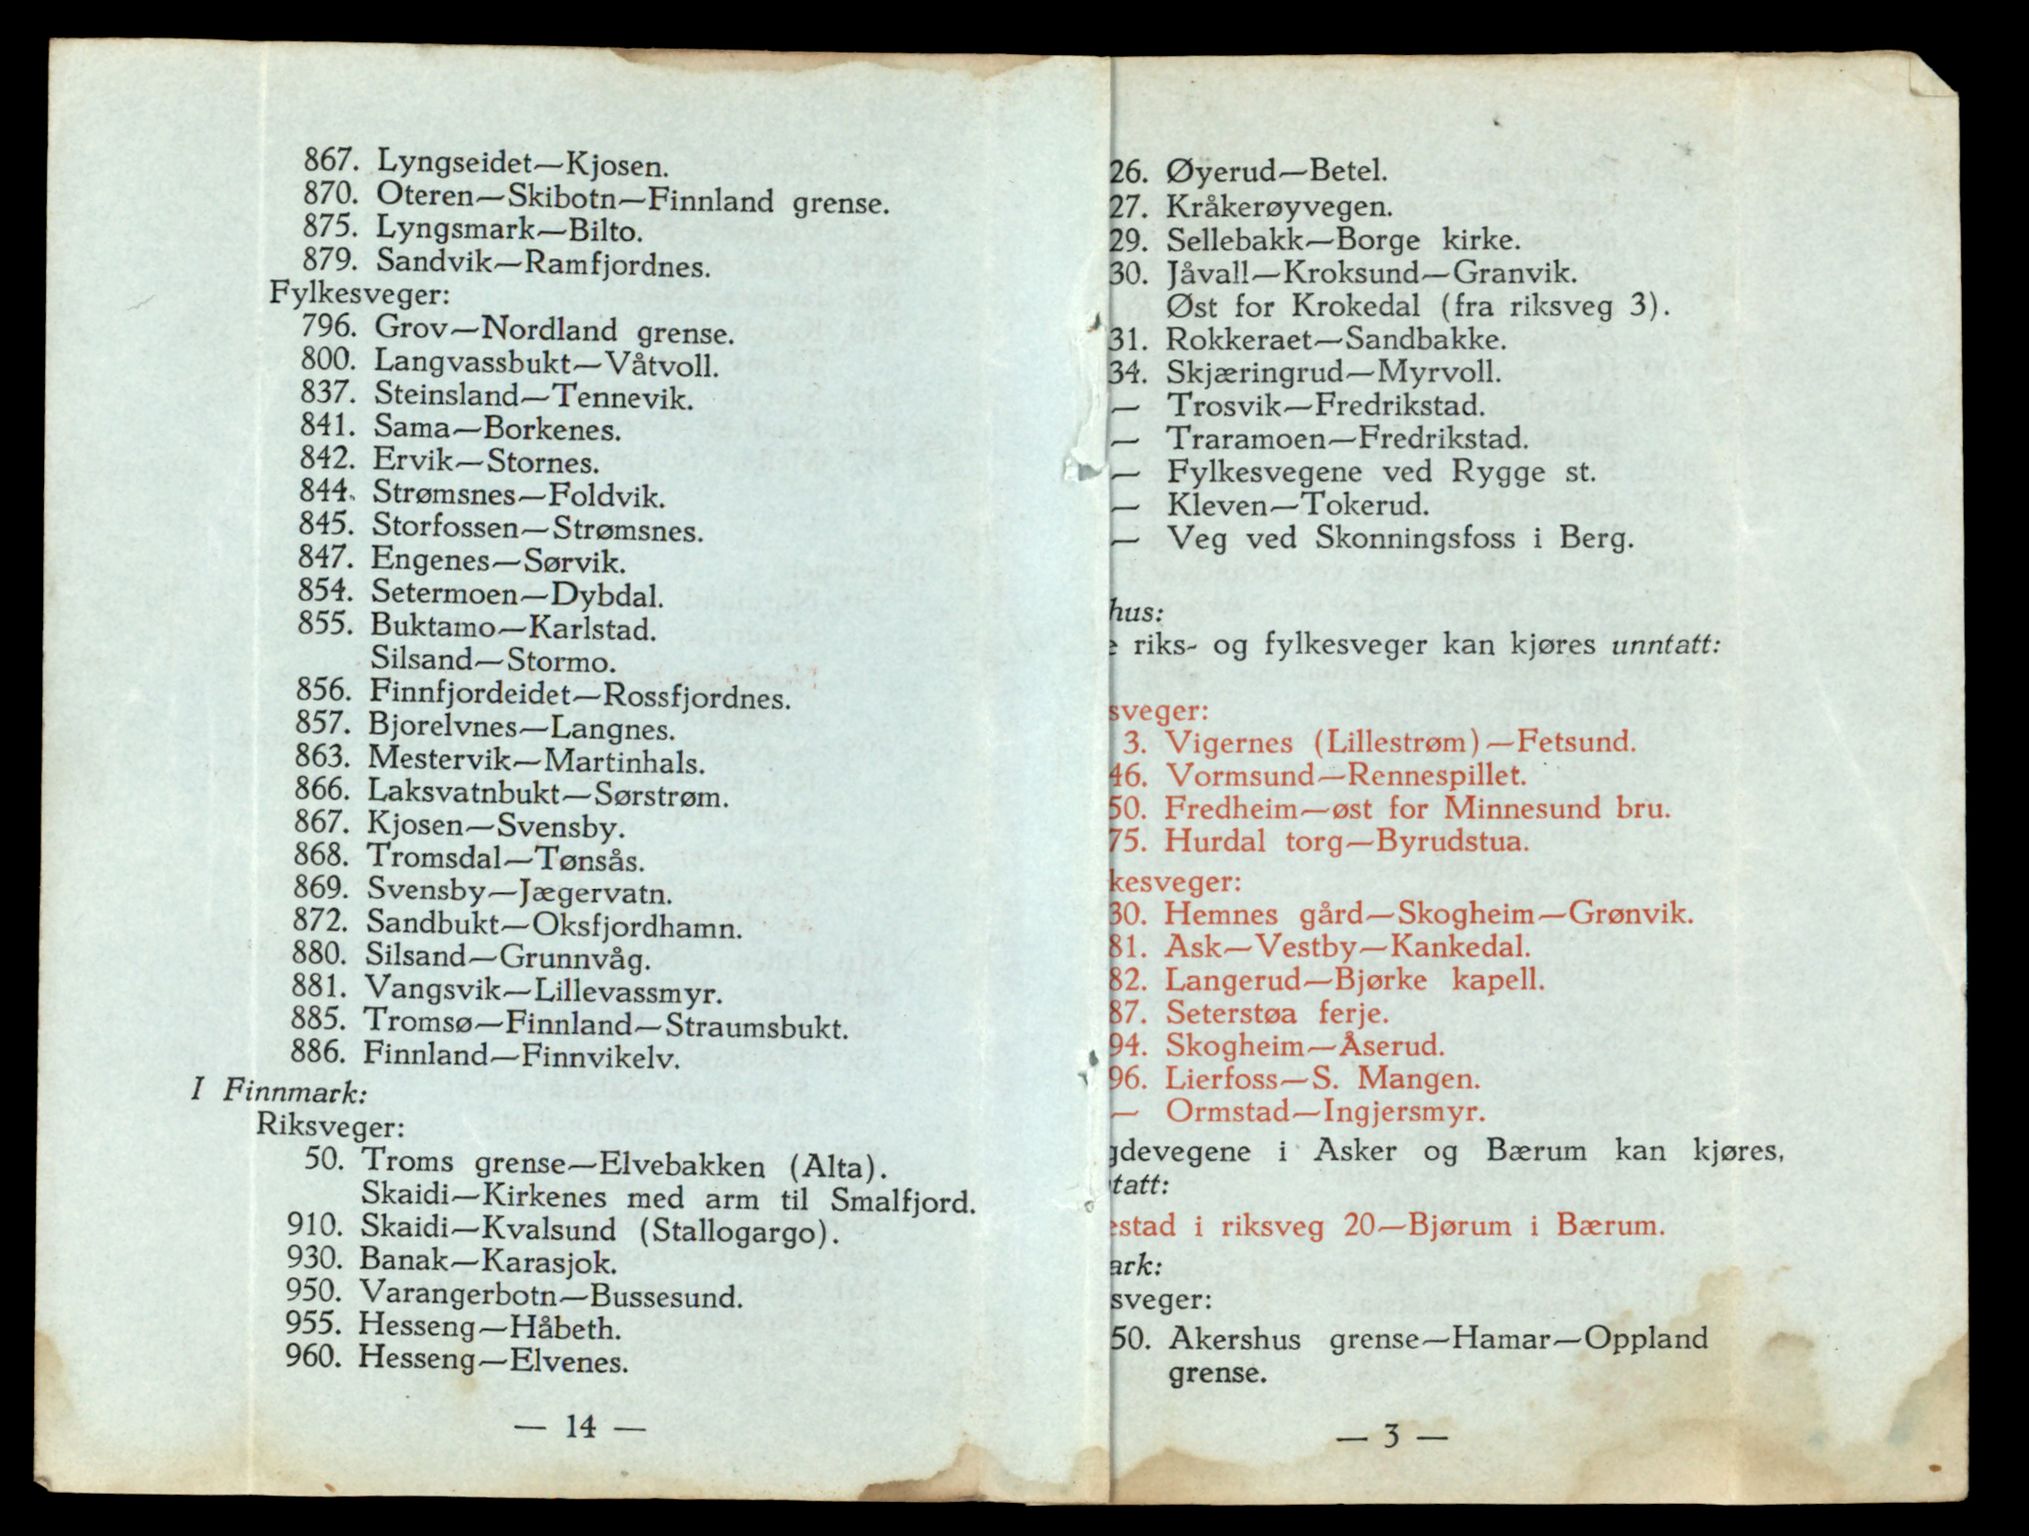 867. Lyngseidet—Kjosen.
870. Oteren—Skibotn—Finnland grense.
875. Lyngsmark—Bilto.
879. Sandvik—Ramfjordnes.
Fylkesveger:
796. Grov—Nordland grense.
800. Langvassbukt—Våtvoll.
837. Steinsland—Tennevik.
841. Sama—Borkenes.
842. Ervik—Stornes.
844. Strømsnes—Foldvik.
845. Storfossen—Strømsnes.
847. Engenes—Sørvik.
854. Setermoen—Dybdal.
855. Buktamo—Karlstad.
Silsand—Stormo.
856. Finnfjordeidet—Rossfjordnes.
857. Bjorelvnes—Langnes.
863. Mestervik—Martinhals.
866. Laksvatnbukt—Sørstrøm.
867. Kjosen—Svensby.
868. Tromsdal—Tønsås.
869. Svensby—Jægervatn.
872. Sandbukt—Oksfjordhamn.
880. Silsand—Grunnvåg.
881. Vangsvik—Lillevassmyr.
885. Tromsø—Finnland—Straumsbukt.
886. Finnland—Finnvikelv.
I Finnmark:
Riksveger:
50. Troms grense—Elvebakken (Alta).
Skaidi—Kirkenes med arm til Smalfjord.
910. Skaidi—Kvalsund (Stallogargo).
930. Banak—Karasjok.
950. Varangerbotn—Bussesund.
955. Hesseng—Håbeth.
960. Hesseng—Elvenes.
— 14 —
26. Øyerud—Betel.
27. Kråkerøyvegen.
29. Sellebakk—Borge kirke.
30. Jåvall—Kroksund—Granvik.
Øst for Krokedal (fra riksveg 3).
31. Rokkeraet—Sandbakke.
34. Skjæringrud—Myrvoll.
— Trosvik—Fredrikstad.
— Traramoen—Fredrikstad.
— Fylkesvegene ved Rygge st.
— Kleven—Tokerud.
— Veg ved Skonningsfoss i Berg.
hus:
e riks- og fylkesveger kan kjøres unntatt:
sveger:
3. Vigernes (Lillestrøm)—Fetsund.
46. Vormsund—Rennespillet.
50. Fredheim—øst for Minnesund bru.
75. Hurdal torg—Byrudstua.
kesveger:
30. Hemnes gård—Skogheim—Grønvik.
81. Ask—Vestby—Kankedal.
82. Langerud—Bjørke kapell.
87. Seterstøa ferje.
94. Skogheim—Åserud.
96. Lierfoss—S. Mangen.
— Ormstad—Ingjersmyr.
gdevegene i Asker og Bærum kan kjøres,
tatt:
estad i riksveg 20—Bjørum i Bærum.
ark:
sveger:
50. Akershus grense—Hamar—Oppland
grense.
— 3 —